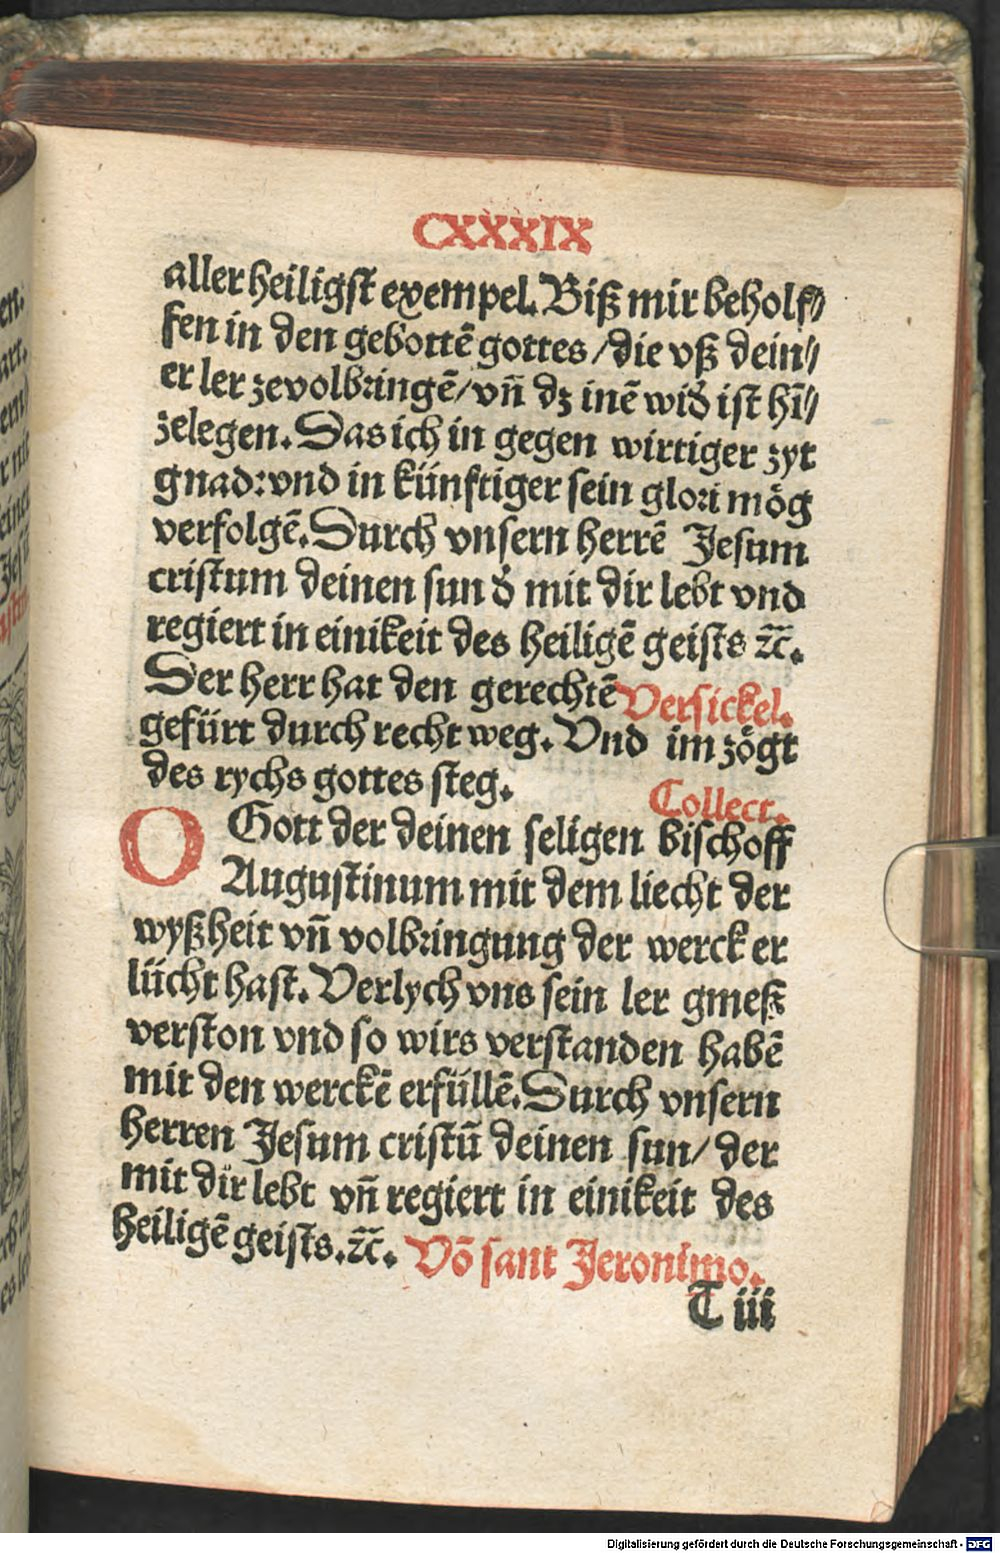 CXXXIX
aller heiligst exempel. Biß mir beholf⸗
fen in den gebottē gottes / die vß dein⸗
er ler zevolbringē / vñ dz inē wid̾ ist hī⸗
zelegen. Das ich in gegen wirtiger zyt
gnad: vnd in künftiger sein glori mög
verfolgē. Durch vnsern herrē Jesum
cristum deinen sun d̾ mit dir lebt vnd
regiert in einikeit des heiligē geists ⁊c̄.
Der herr hat den gerechtē Versickel.
gefürt durch recht weg. Vnd im zögt
des rychs gottes steg.
Collect.
O Gott der deinen seligen bischoff
Augustinum mit dem liecht der
wyßheit vñ volbringung der werck er
lücht hast. Verlych vns sein ler gmeß
verston vnd so wirs verstanden habē
mit den werckē erfüllē. Durch vnsern
herren Jesum cristū deinen sun / der
mit dir lebt vñ regiert in einikeit des
heiligē geists. ⁊c̄. Vō sant Jeronimo.
T iii
Digitalisierung gefördert durch die Deutsche Forschungsgemeinschaft - DFG